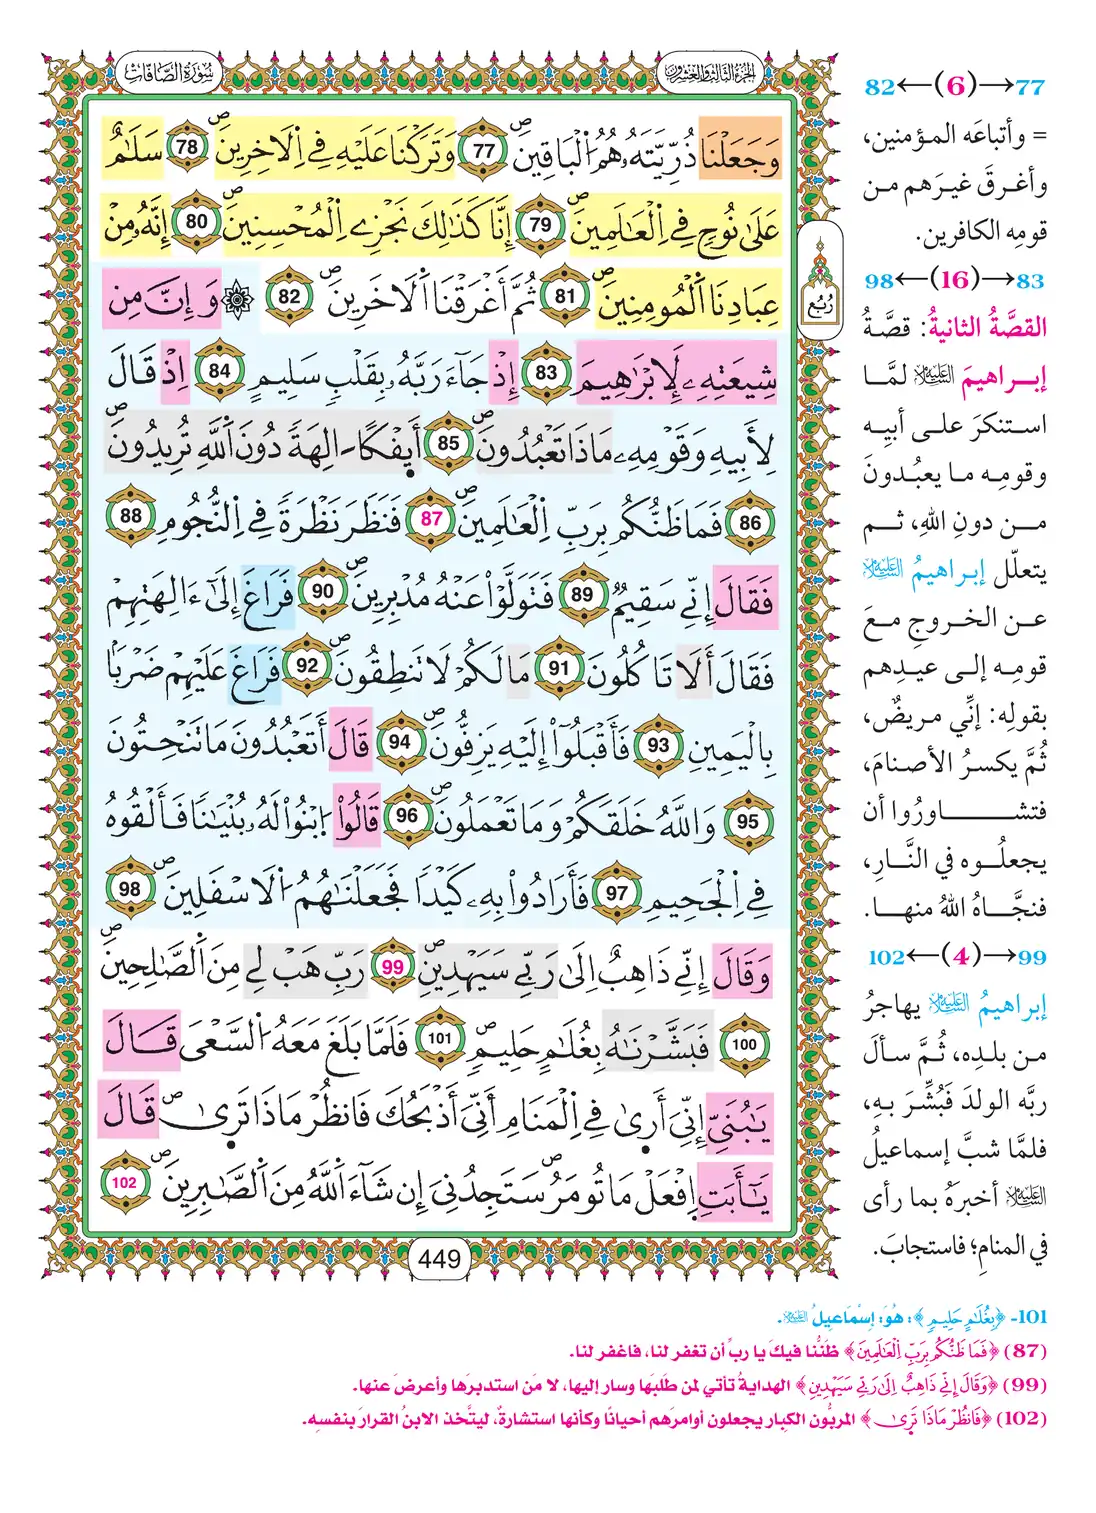 سُورَةُ الصَّافَّاتِ
الجُزْءُ الثَّالِثُ وَالعِشْرُونَ
وَجَعَلْنَا ذُرِّيَّتَهُۥ هُمُ اُ۬لْبَاقِينَۖ 77 وَتَرَكْنَا عَلَيْهِ فِے اِ۬لَاخِرِينَۖ 78 سَلَٰمٌ
عَلَىٰ نُوحٖ فِے اِ۬لْعَٰلَمِينَۖ 79 إِنَّا كَذَٰلِكَ نَجْزِے اِ۬لْمُحْسِنِينَۖ 80 إِنَّهُۥ مِنْ
عِبَادِنَا اَ۬لْمُومِنِينَۖ 81 ثُمَّ أَغْرَقْنَا اَ۬لَاخَرِينَۖ 82 ۞ وَإِنَّ مِن
شِيعَتِهِۦ لَإِبْرَٰهِيمَ 83 إِذْ جَآءَ رَبَّهُۥ بِقَلْبٖ سَلِيمٍ 84 اِذْ قَالَ
لِأَبِيهِ وَقَوْمِهِۦ مَاذَا تَعْبُدُونَۖ 85 أَئِفْكاً اٰلِهَةٗ دُونَ اَ۬للَّهِ تُرِيدُونَۖ
86 فَمَا ظَنُّكُم بِرَبِّ اِ۬لْعَٰلَمِينَۖ 87 فَنَظَرَ نَظْرَةٗ فِے اِ۬لنُّجُومِ 88
فَقَالَ إِنِّے سَقِيمٞ 89 فَتَوَلَّوْاْ عَنْهُ مُدْبِرِينَۖ 90 فَرَاغَ إِلَىٰٓ ءَالِهَتِهِمْ
فَقَالَ أَلَا تَاكُلُونَ 91 مَا لَكُمْ لَا تَنطِقُونَۖ 92 فَرَاغَ عَلَيْهِمْ ضَرْبَاۢ
بِالْيَمِينِ 93 فَأَقْبَلُوٓاْ إِلَيْهِ يَزِفُّونَۖ 94 قَالَ أَتَعْبُدُونَ مَا تَنْحِتُونَ
95 وَاللَّهُ خَلَقَكُمْ وَمَا تَعْمَلُونَۖ 96 قَالُواْ اُ۪بْنُواْ لَهُۥ بُنْيَٰنٗا فَأَلْقُوهُ
فِے اِ۬لْجَحِيمِ 97 فَأَرَادُواْ بِهِۦ كَيْدٗا فَجَعَلْنَٰهُمُ اُ۬لَاسْفَلِينَۖ 98
وَقَالَ إِنِّے ذَاهِبٌ اِلَىٰ رَبِّے سَيَهْدِينِۖ 99 رَبِّ هَبْ لِے مِنَ اَ۬لصَّٰلِحِينَۖ
100 فَبَشَّرْنَٰهُ بِغُلَٰمٍ حَلِيمٖۖ 101 فَلَمَّا بَلَغَ مَعَهُ اُ۬لسَّعْيَ قَالَ
يَٰبُنَيِّ إِنِّيَ أَر۪ىٰ فِے اِ۬لْمَنَامِ أَنِّيَ أَذْبَحُكَ فَانظُرْ مَاذَا تَر۪ىٰۖ قَالَ
يَٰٓأَبَتِ اِ۪فْعَلْ مَا تُومَرُۖ سَتَجِدُنِيَ إِن شَآءَ اَ۬للَّهُ مِنَ اَ۬لصَّٰبِرِينَۖ 102
رُبُع
449
77→(6)←82
= وأتباعَه المؤمنين،
وأغرقَ غيرَهم من
قومِه الكافرين.
83→(16)←98
القصَّةُ الثانيةُ: قصَّةُ
إبراهيمَ عَلَيْهِ السَّلَامُ لمَّا
استنكرَ على أبيِه
وقومِه ما يعبُدونَ
من دونِ اللهِ، ثم
يتعلّل إبراهيمُ عَلَيْهِ السَّلَامُ
عن الخروجِ معَ
قومِه إلى عيدِهم
بقولِه: إنِّي مريضٌ،
ثُمَّ يكسرُ الأصنامَ،
فتشاورُوا أن
يجعلُوه في النَّارِ،
فنجَّاهُ اللهُ منها.
99→(4)←102
إبراهيمُ عَلَيْهِ السَّلَامُ يهاجرُ
من بلدِه، ثُمَّ سألَ
ربَّه الولدَ فَبُشِّرَ بهِ،
فلمَّا شبَّ إسماعيلُ
عَلَيْهِ السَّلَامُ أخبرَهُ بما رأى
في المنامِ؛ فاستجابَ.
101- ﴿بِغُلَٰمٍ حَلِيمٖ﴾: هُوَ: إسْمَاعِيلُ عَلَيْهِ السَّلَامُ.
(87) ﴿فَمَا ظَنُّكُم بِرَبِّ اِ۬لْعَٰلَمِينَ﴾ ظَنُّنا فيكَ يا ربِّ أن تغفر لنا، فاغفر لنا.
(99) ﴿وَقَالَ إِنِّے ذَاهِبٌ اِلَىٰ رَبِّے سَيَهْدِينِ﴾ الهدايةُ تأتي لمن طلبَها وسار إليها، لا مَن استدبرَها وأعرضَ عنها.
(102) ﴿فَانظُرْ مَاذَا تَر۪ىٰ﴾ المربُّون الكبار يجعلون أوامرَهم أحيانًا وكأنها استشارةٌ، ليتَّخذ الابنُ القرارَ بنفسِه.